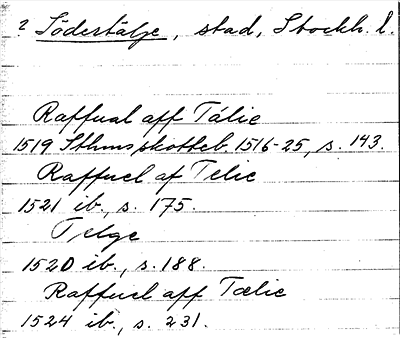 2 Södertälje, stad, Stockh. l.
Raffual aff Tälie
1519 Sthms skotteb. 1516-25, s. 143.
Raffuel af Telie
1521 ib., s. 175.
Telge
1520 ib., s. 188.
Raffuel aff Tælie
1524 ib., s. 231.